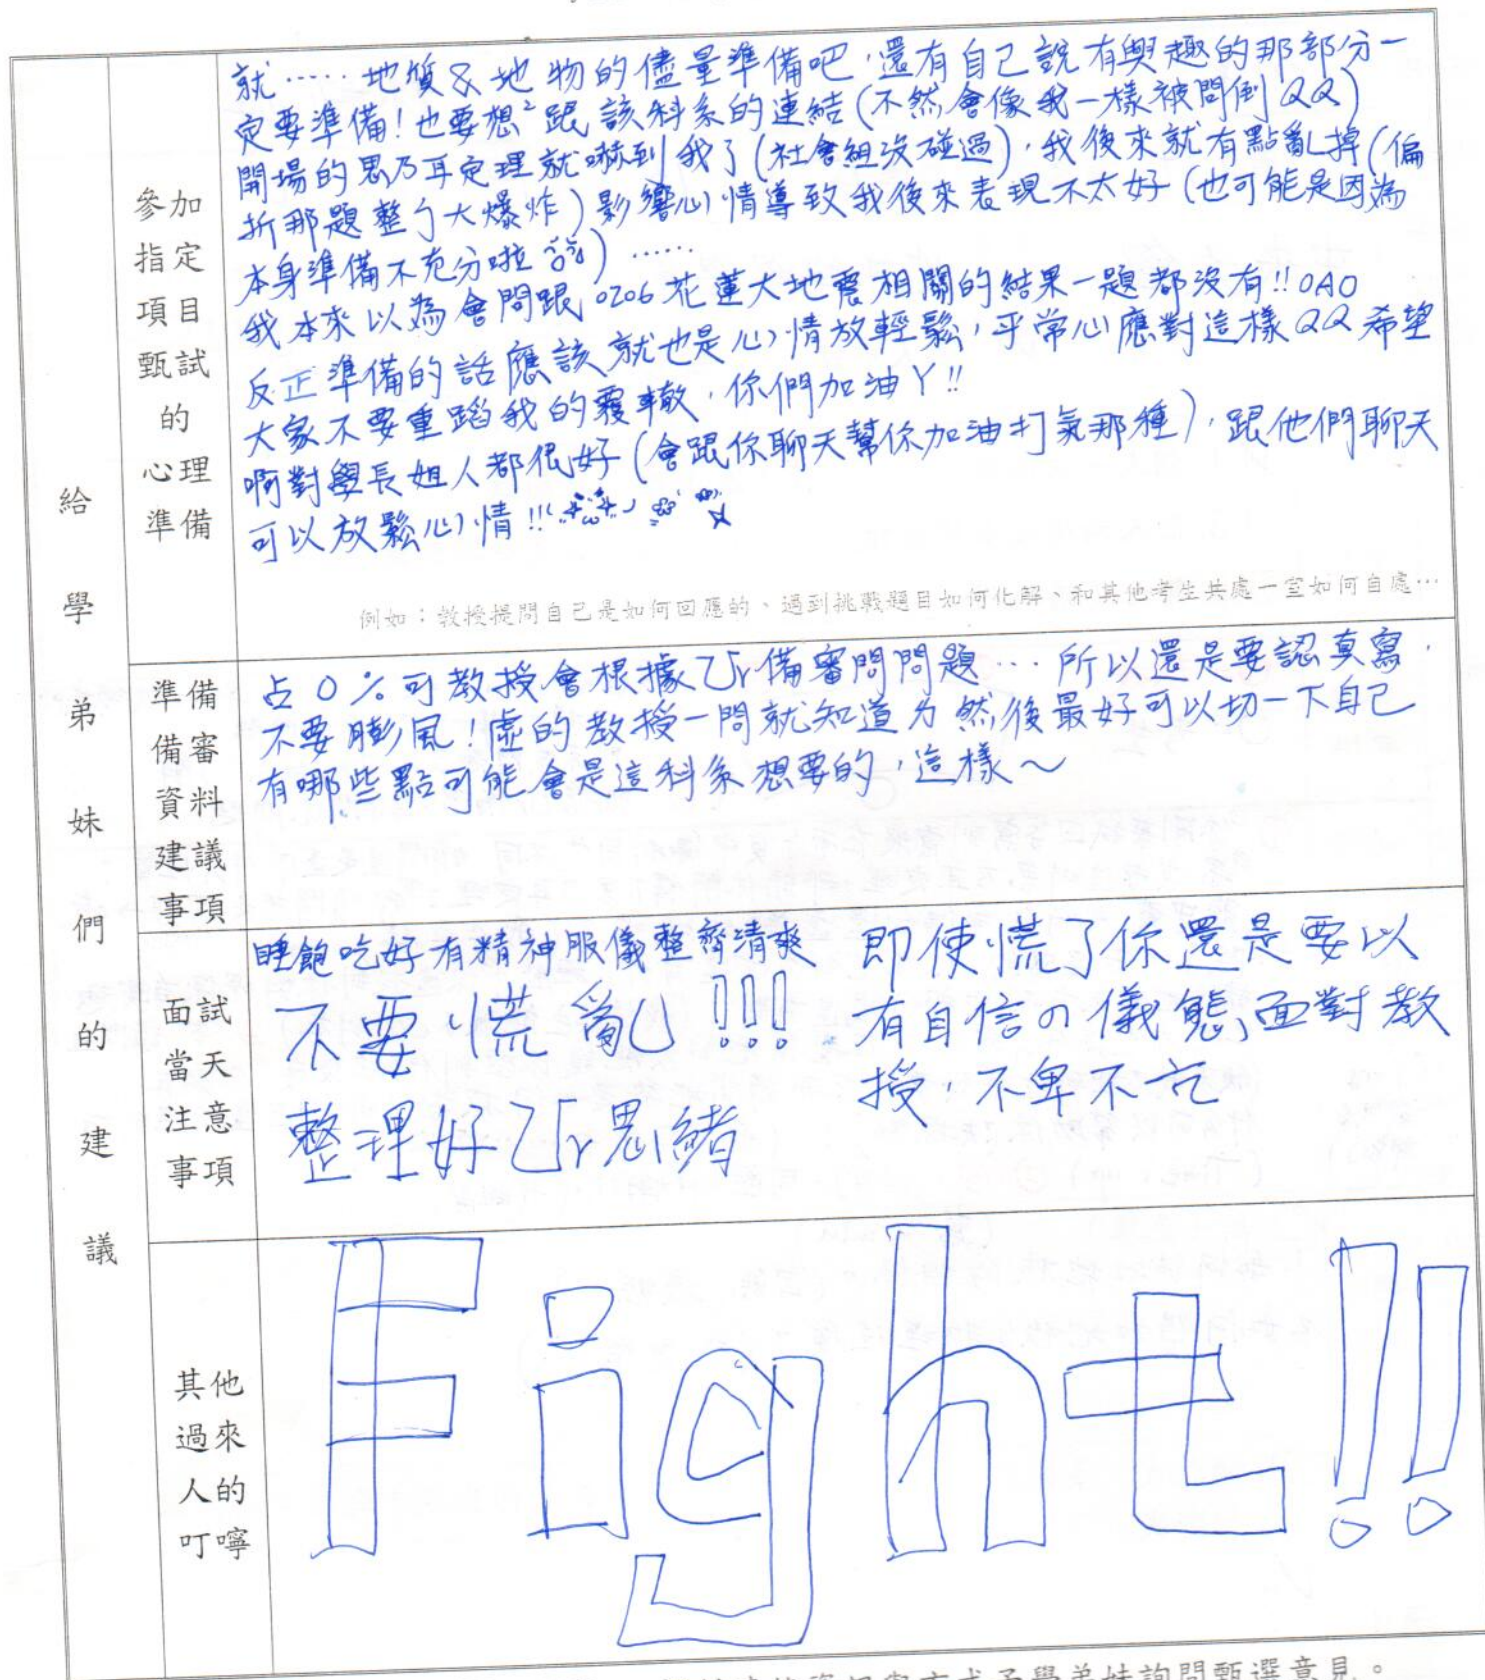 給學弟妹們的建議
參加
指定
項目
甄試
的
心理
準備
就……地質&地物的儘量準備吧,還有自己說有興趣的那部分一
定要準備!也要想²跟該科系的連結(不然會像我一樣被問倒QQ)
開場的思乃耳定理就嚇到我了(社會組沒碰過),我後來就有點亂掉(偏
折那題整个大爆炸)影響心情導致我後來表現不太好(也可能是因為
本身準備不充分啦)……
我本來以為會問跟0206花蓮大地震相關的結果一題都沒有!!OAO
反正準備的話應該就也是心情放輕鬆,平常心應對這樣QQ希望
大家不要重蹈我的覆轍,你們加油Y!!
啊對學長姐人都很好(會跟你聊天幫你加油打氣那種),跟他們聊天
可以放鬆心情!!!
例如:教授提問自己是如何回應的、遇到挑戰題目如何化解、和其他考生共處一室如何自處…
準備
備審
資料
建議
事項
占0%可教授會根據ㄋㄉ備審問問題…所以還是要認真寫,
不要膨風!虛的教授一問就知道ㄌ然後最好可以切一下自己
有哪些點可能會是這科系想要的,這樣~
面試
當天
注意
事項
睡飽吃好有精神服儀整齊清爽
不要慌亂!!!
整理好ㄋㄉ思緒
即使慌了你還是要以
有自信の儀態面對教
授,不卑不亢
其他
過來
人的
叮嚀
Fight!!
予學弟妹詢問甄選意見。